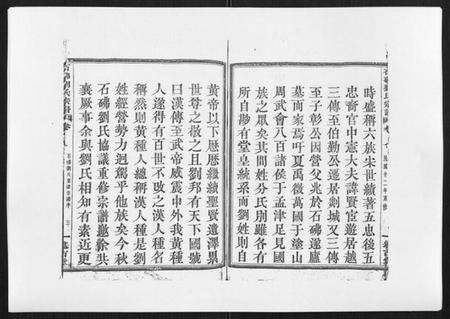 時盛稱六族宋世績著五忠後五
忠裔官中憲大夫諱賢宦遊居越
三傳至伯勤公遷居剡城又三傳
至子彰公因營父兆於石碑遂廬
墓而家焉吁夏禹徵萬國于塗山
周武會八百諸侯于孟津足見國
族之眾矣其間姓分氏別雖各有
所自陟有堂皇統系而劉姓則自
黃帝以下歷歷繼續聖賢遺澤累
世尊之敬之且劉邦有天下國號
曰漢傳至武帝威震中外我黃種
人遂得有百世不改之漢人種名
稱然則黃種人總稱漢人種是劉
姓經營勢力迥駕乎他族矣今秋
石碑劉氏協議重修宗譜邀余共
襄厥事余與劉氏相知有素近更